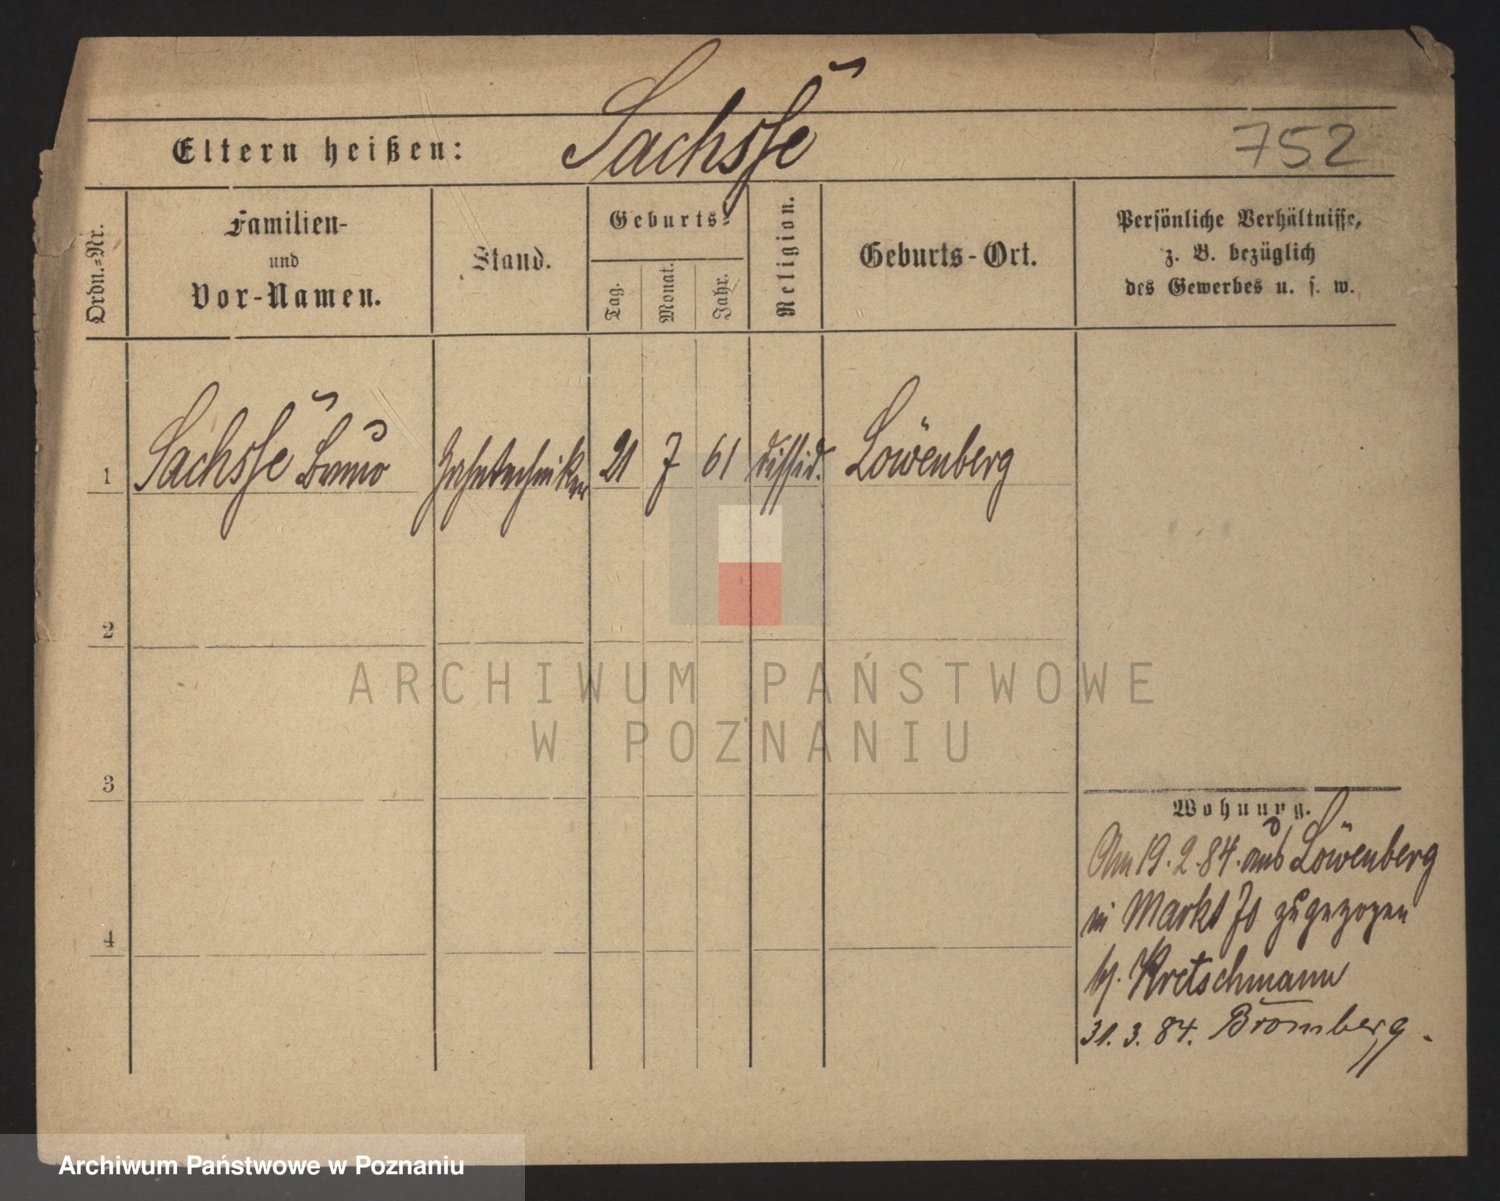 Sachsse
Eltern heißen:
752
Ordn.-Nr.
Familien-
und
Vor-Namen.
Stand.
Geburts-
Tag.
Monat.
Jahr.
Religion.
Geburts-Ort.
Persönliche Verhältnisse,
z. B. bezüglich
des Gewerbes u. s. w.
1 Sachsse Bruno Zahntechniker 21 7 61 dissid. Löwenberg
2
3
4
Wohnung.
Am 19.2.84. aus Löwenberg
in Markt 71 zugezogen
bei Kretschmann
31.3.84. Bromberg.
ARCHIWUM PAŃSTWOWE
W POZNANIU
Archiwum Państwowe w Poznaniu